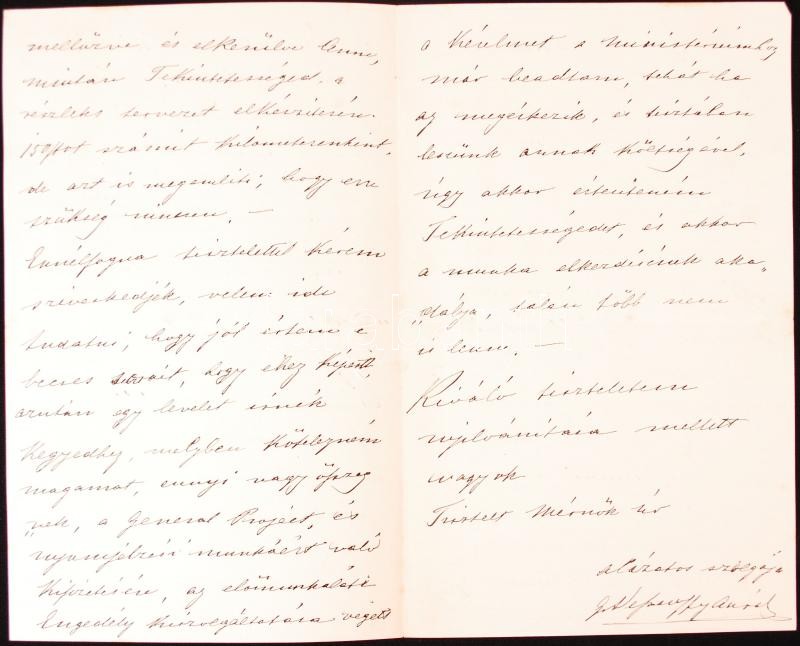 mellőzve és elkerülve lenne,
miután Tekintetességed a
részletes tervezet elkészitésére
150 frtot számít kilometerenkint,
de azt is megemliti, hogy erre
szükség nincsen. —
Ennélfogva tisztelettel kérem
sziveskedjék, velem ide
tudatni, hogy jól értem e
becses sorait, hogy ehez képest
azután egy levelet irnék
Kegyedhez, melyben kötelezném
magamat, ennyi vagy összeg
„nek, a General Project, és
munkáért való
kifizetésére, az előmunkálati
Engedély kiszolgáltatása végett
a kérelmet a ministériumhoz
már beadtam, tehát ha
az megérkezik, és tisztában
leszünk annak költségével,
úgy akkor értesiteném
Tekintetességedet, és akkor
a munka elkezdésének aka„
„dálya, talán több nem
is lenne. —
Kiváló tiszteletem
nyilvánitása mellett
vagyok
Tisztelt Mérnök úr
alázatos szolgája